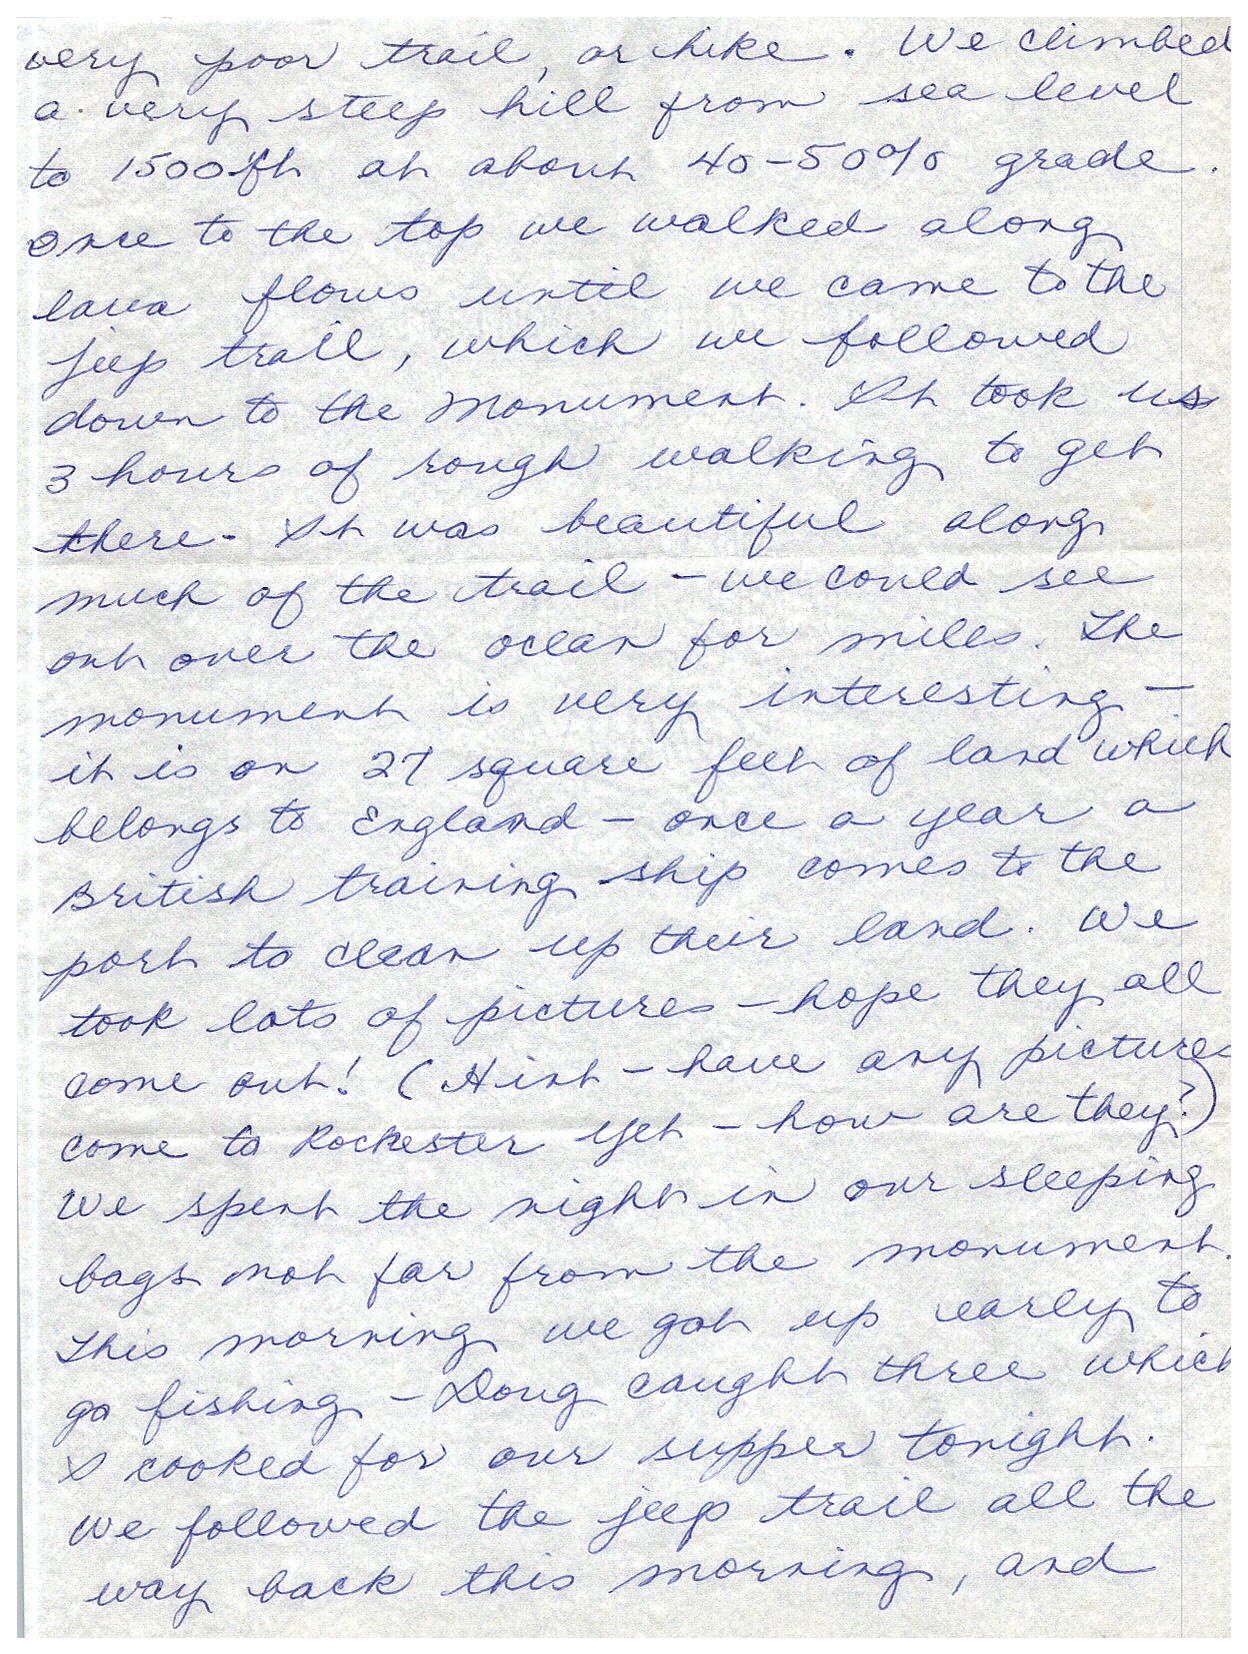 very poor trail, or hike. We climbed
a very steep hill from sea level
to 1500 ft at about 40-50% grade.
Once to the top we walked along
lava flows until we came to the
jeep trail, which we followed
down to the monument. It took us
3 hours of rough walking to get
there. It was beautiful along
much of the trail - we could see
out over the ocean for miles. The
monument is very interesting -
it is on 27 square feet of land which
belongs to England - once a year a
British training ship comes to the
port to clean up their land. We
took lots of pictures - hope they all
come out! (Hint - have any pictures
come to Rochester yet - how are they?)
We spent the night in our sleeping
bags not far from the monument.
This morning we got up early to
go fishing - Doug caught three which
I cooked for our supper tonight.
We followed the jeep trail all the
way back this morning, and